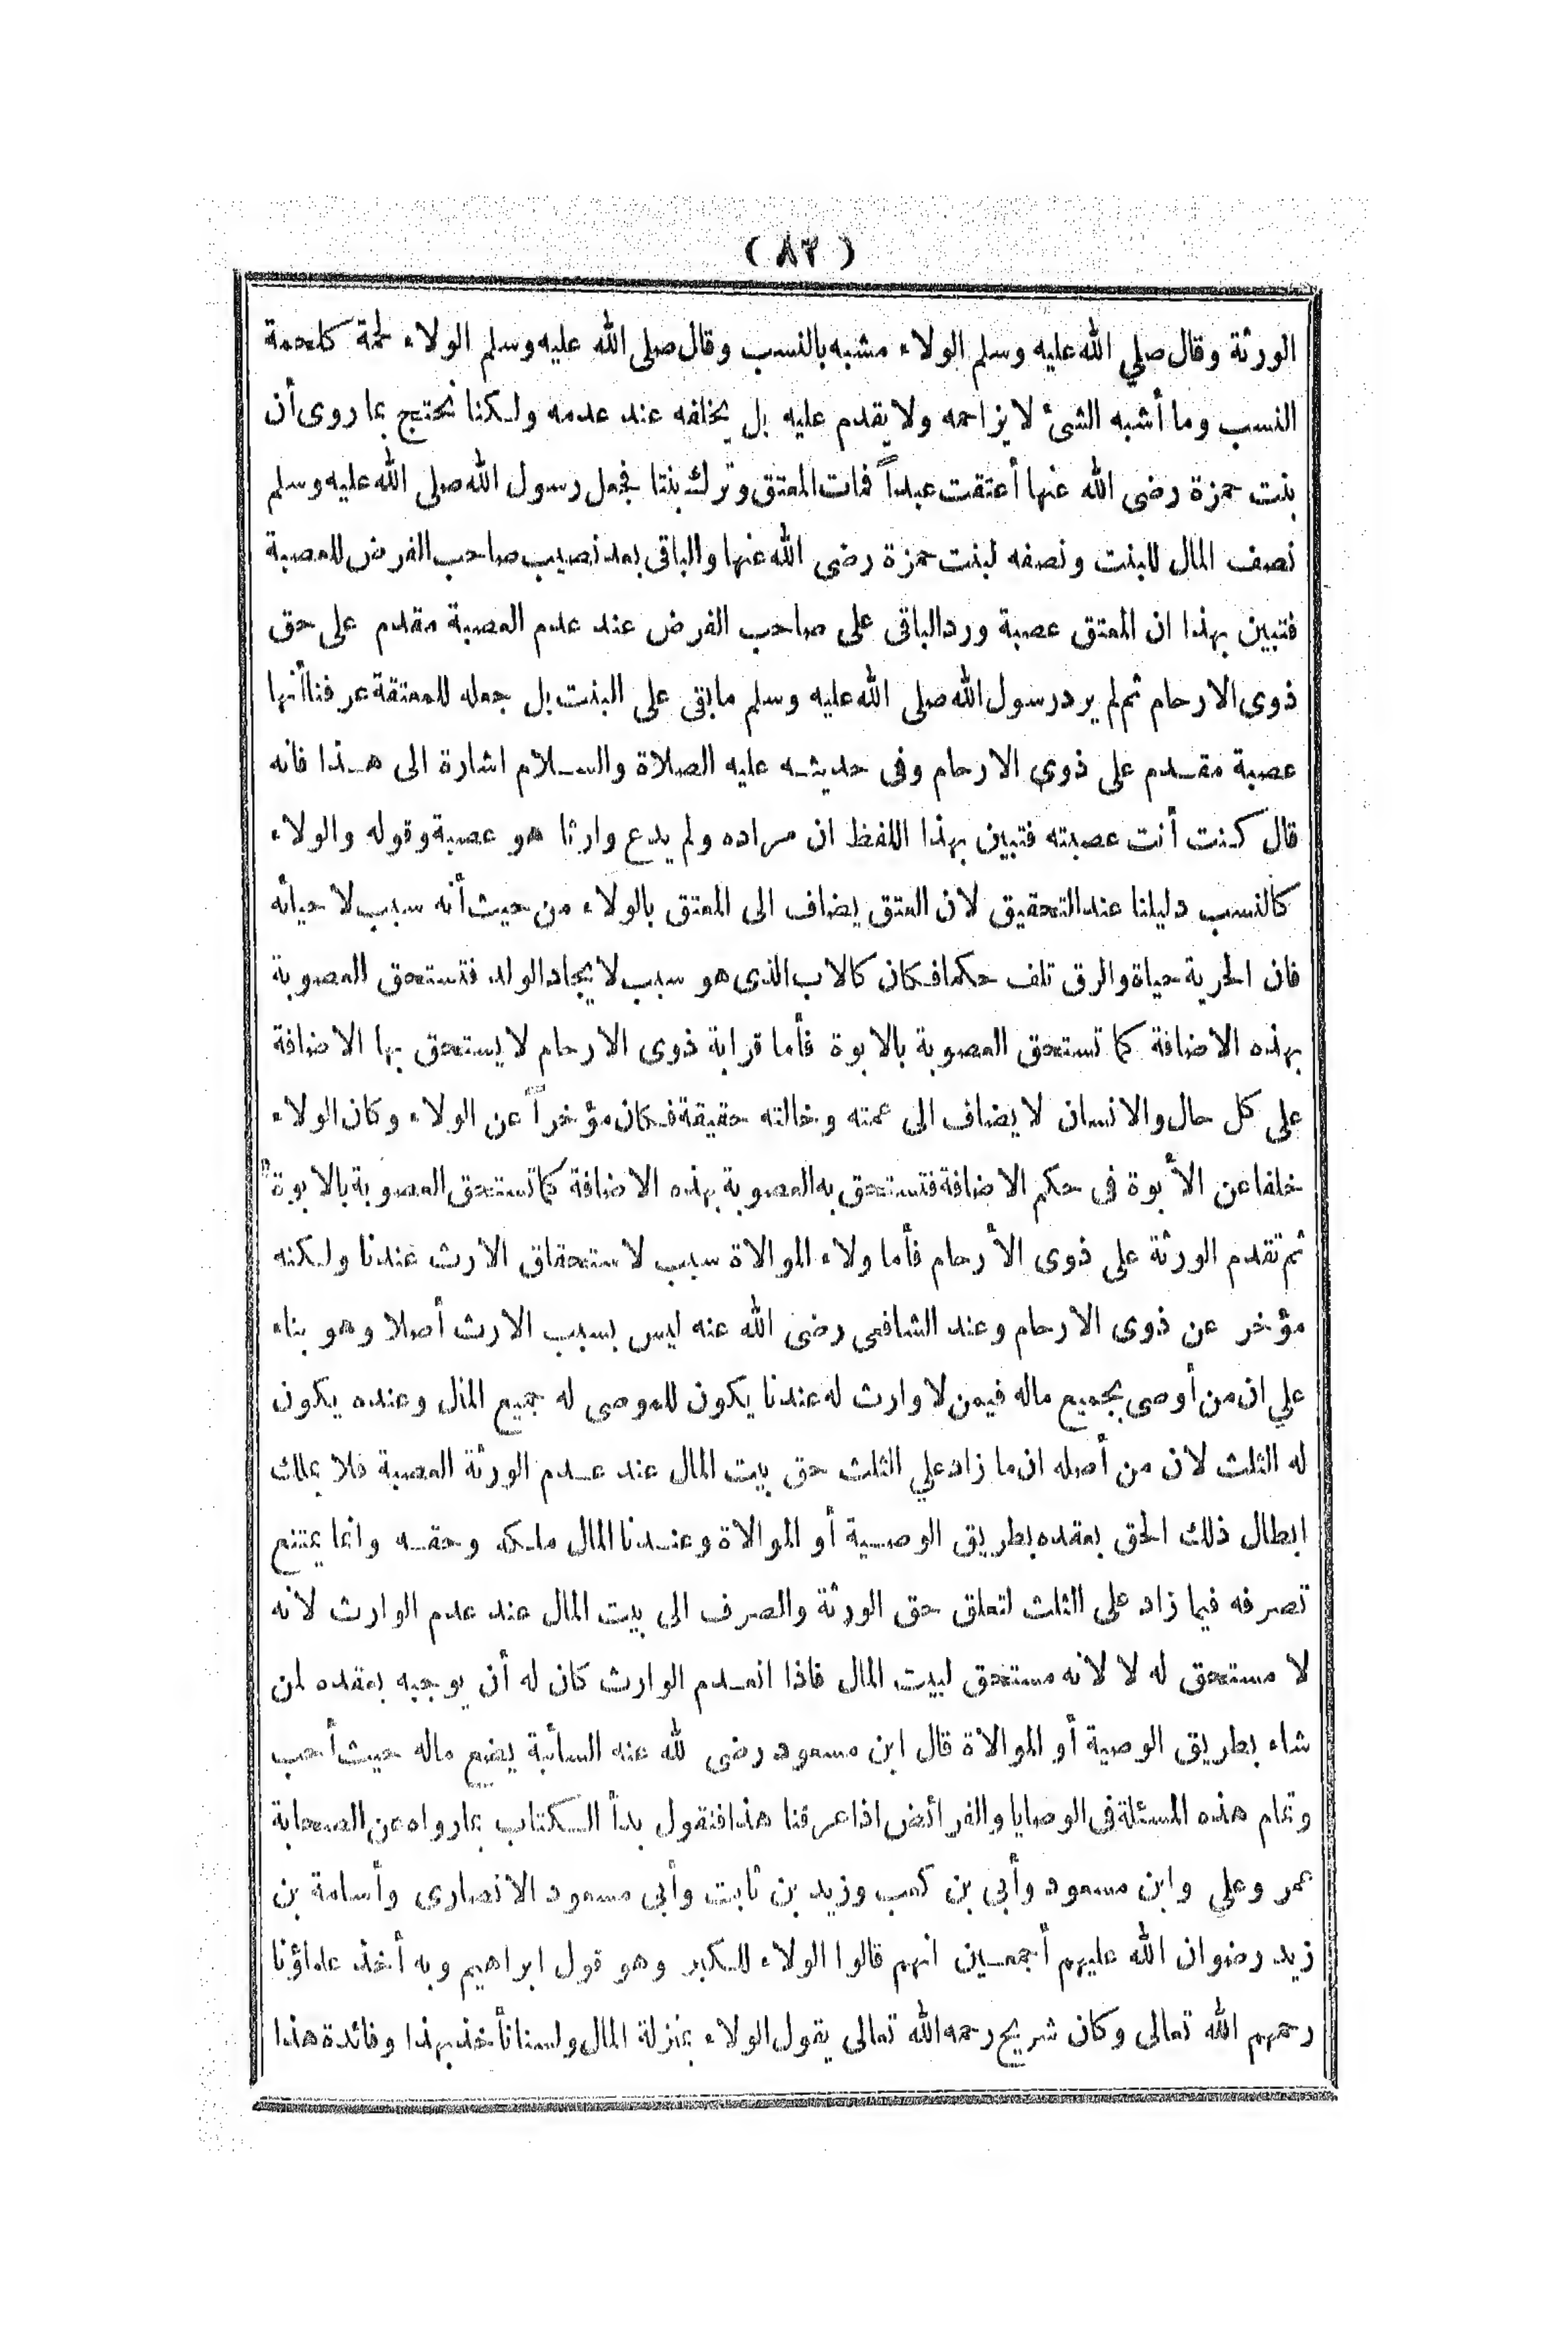 (٨٢)
الورثة وقال صلي الله عليه وسلم الولاء مشبه بالنسب وقال صلى الله عليه وسلم الولاء لحمة كلحمة
النسب وما أشبه الشئ لا يزاحمه ولا يقدم عليه بل يخلفه عند عدمه ولكنا نحتج بما روى أن
بنت حمزة رضى الله عنها أعتقت عبداً فمات المعتق وترك بنتا فجعل رسول الله صلى الله عليه وسلم
نصف المال للبنت ونصفه لبنت حمزة رضى الله عنها والباقى بعد نصيب صاحب الفرض للعصبة
فتبين بهذا ان المعتق عصبة ورد الباقى على صاحب الفرض عند عدم العصبة مقدم على حق
ذوى الارحام ثم لم يرد رسول الله صلى الله عليه وسلم ما بقى على البنت بل جعله للمعتقة عرفنا أنها
عصبة مقدم على ذوى الارحام وفى حديثه عليه الصلاة والسلام اشارة الى هذا فانه
قال كنت أنت عصبته فتبين بهذا اللفظ ان مراده ولم يدع وارثا هو عصبة وقوله والولاء
كالنسب دليلنا عند التحقيق لان العتق يضاف الى المعتق بالولاء من حيث أنه سبب لاحيائه
فان الحرية حياة والرق تلف حكما فكان كالاب الذى هو سبب لايجاد الولد فتستحق العصوبة
بهذه الاضافة كما تستحق العصوبة بالابوة فأما قرابة ذوى الارحام لا يستحق بها الاضافة
على كل حال والانسان لا يضاف الى عمته وخالته حقيقة فكان مؤخراً عن الولاء وكان الولاء
خلفا عن الأبوة فى حكم الاضافة فتستحق به العصوبة بهذه الاضافة كما تستحق العصوبة بالابوة
ثم تقدم الورثة على ذوى الأرحام فأما ولاء الموالاة سبب لاستحقاق الارث عندنا ولكنه
مؤخر عن ذوى الارحام وعند الشافعى رضى الله عنه ليس بسبب الارث أصلا وهو بناء
علي ان من أوصى بجميع ماله فيمن لا وارث له عندنا يكون للموصى له جميع المال وعنده يكون
له الثلث لان من أصله ان ما زاد علي الثلث حق بيت المال عند عدم الورثة العصبة فلا يملك
ابطال ذلك الحق بعقده بطريق الوصية أو الموالاة وعندنا المال ملكه وحقه وانما يمتنع
تصرفه فيما زاد على الثلث لتعلق حق الورثة والصرف الى بيت المال عند عدم الوارث لانه
لا مستحق له لا لانه مستحق لبيت المال فاذا انعدم الوارث كان له أن يوجبه بعقده لمن
شاء بطريق الوصية أو الموالاة قال ابن مسعود رضى لله عنه السائبة يضع ماله حيث أحب
وتمام هذه المسئلة فى الوصايا والفرائض اذا عرفنا هذا فنقول بدأ الكتاب بما رواه عن الصحابة
عمر وعلي وابن مسعود وأبى بن كعب وزيد بن ثابت وأبى مسعود الانصارى وأسامة بن
زيد رضوان الله عليهم أجمعين انهم قالوا الولاء للكبر وهو قول ابراهيم وبه أخذ علماؤنا
رحمهم الله تعالى وكان شريح رحمه الله تعالى يقول الولاء بمنزلة المال ولسنا نأخذ بهذا وفائدة هذا